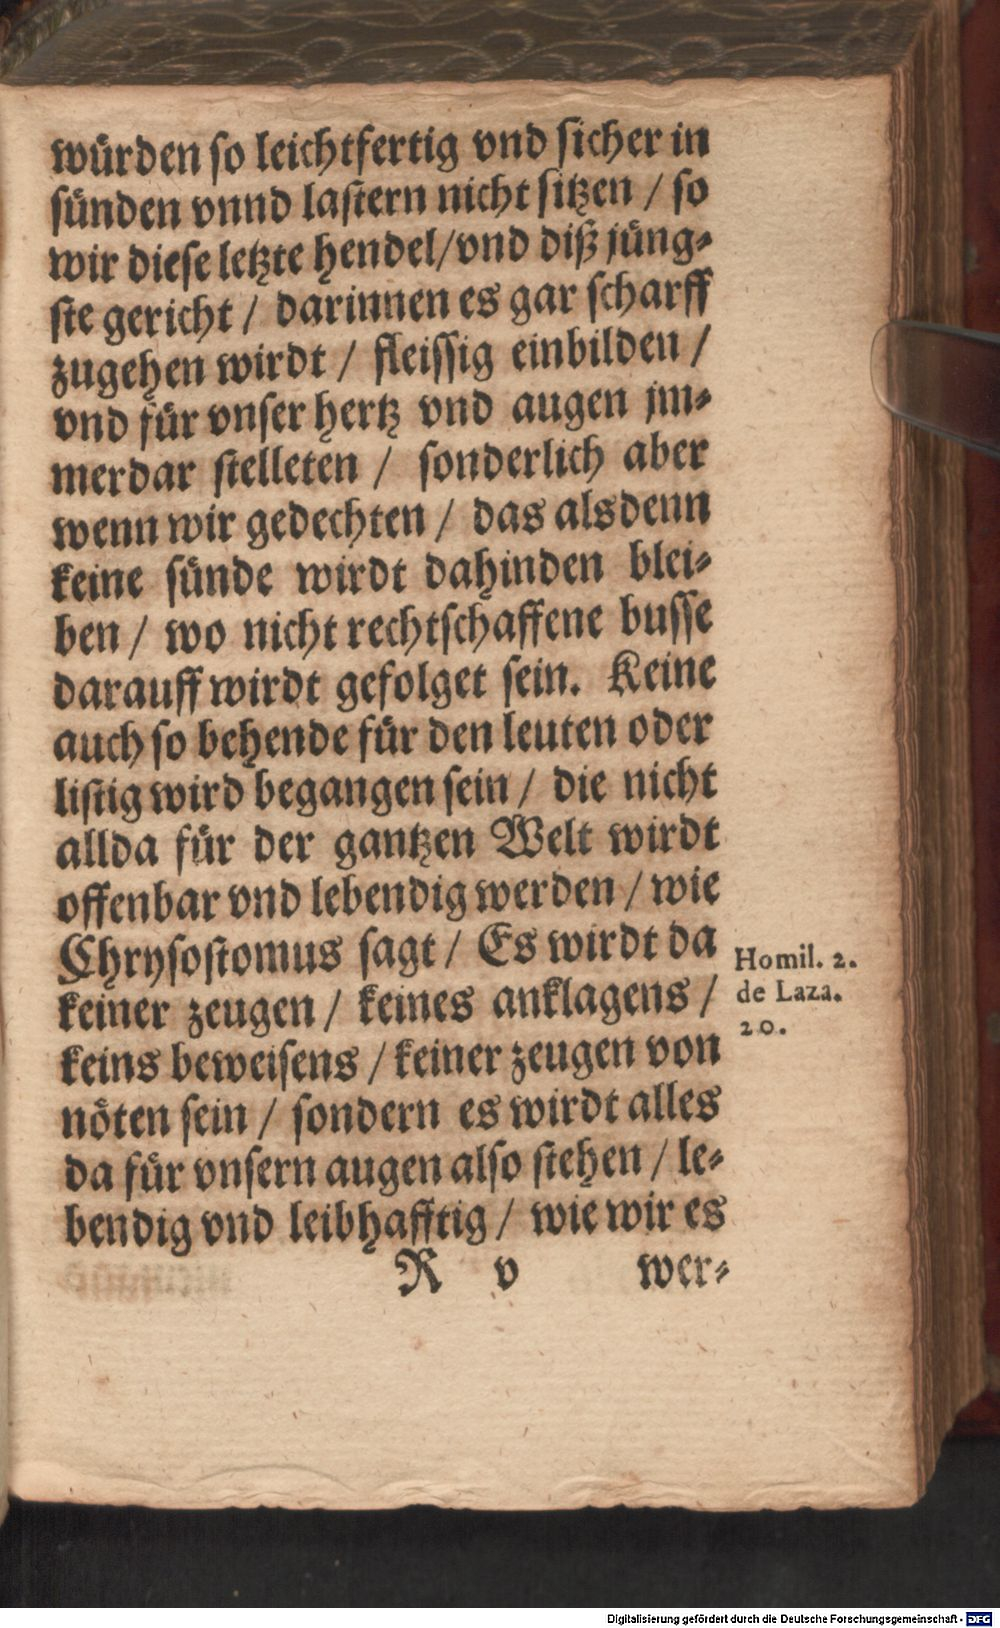 würden so leichtfertig vnd sicher in
sünden vnnd lastern nicht sitzen / so
wir diese letzte hendel/vnd diß jüng-
ste gericht / darinnen es gar scharff
zugehen wirdt / fleissig einbilden /
vnd für vnser hertz vnd augen jm-
merdar stelleten / sonderlich aber
wenn wir gedechten / das alsdenn
keine sünde wirdt dahinden blei-
ben / wo nicht rechtschaffene busse
darauff wirdt gefolget sein. Keine
auch so behende für den leuten oder
listig wird begangen sein / die nicht
allda für der gantzen Welt wirdt
offenbar vnd lebendig werden / wie
Chrysostomus sagt / Es wirdt da
keiner zeugen / keines anklagens /
keins beweisens / keiner zeugen von
nöten sein / sondern es wirdt alles
da für vnsern augen also stehen / le-
bendig vnd leibhafftig / wie wir es
R v wer-
Homil. 2.
de Laza.
20.
Digitalisierung gefördert durch die Deutsche Forschungsgemeinschaft - DFG